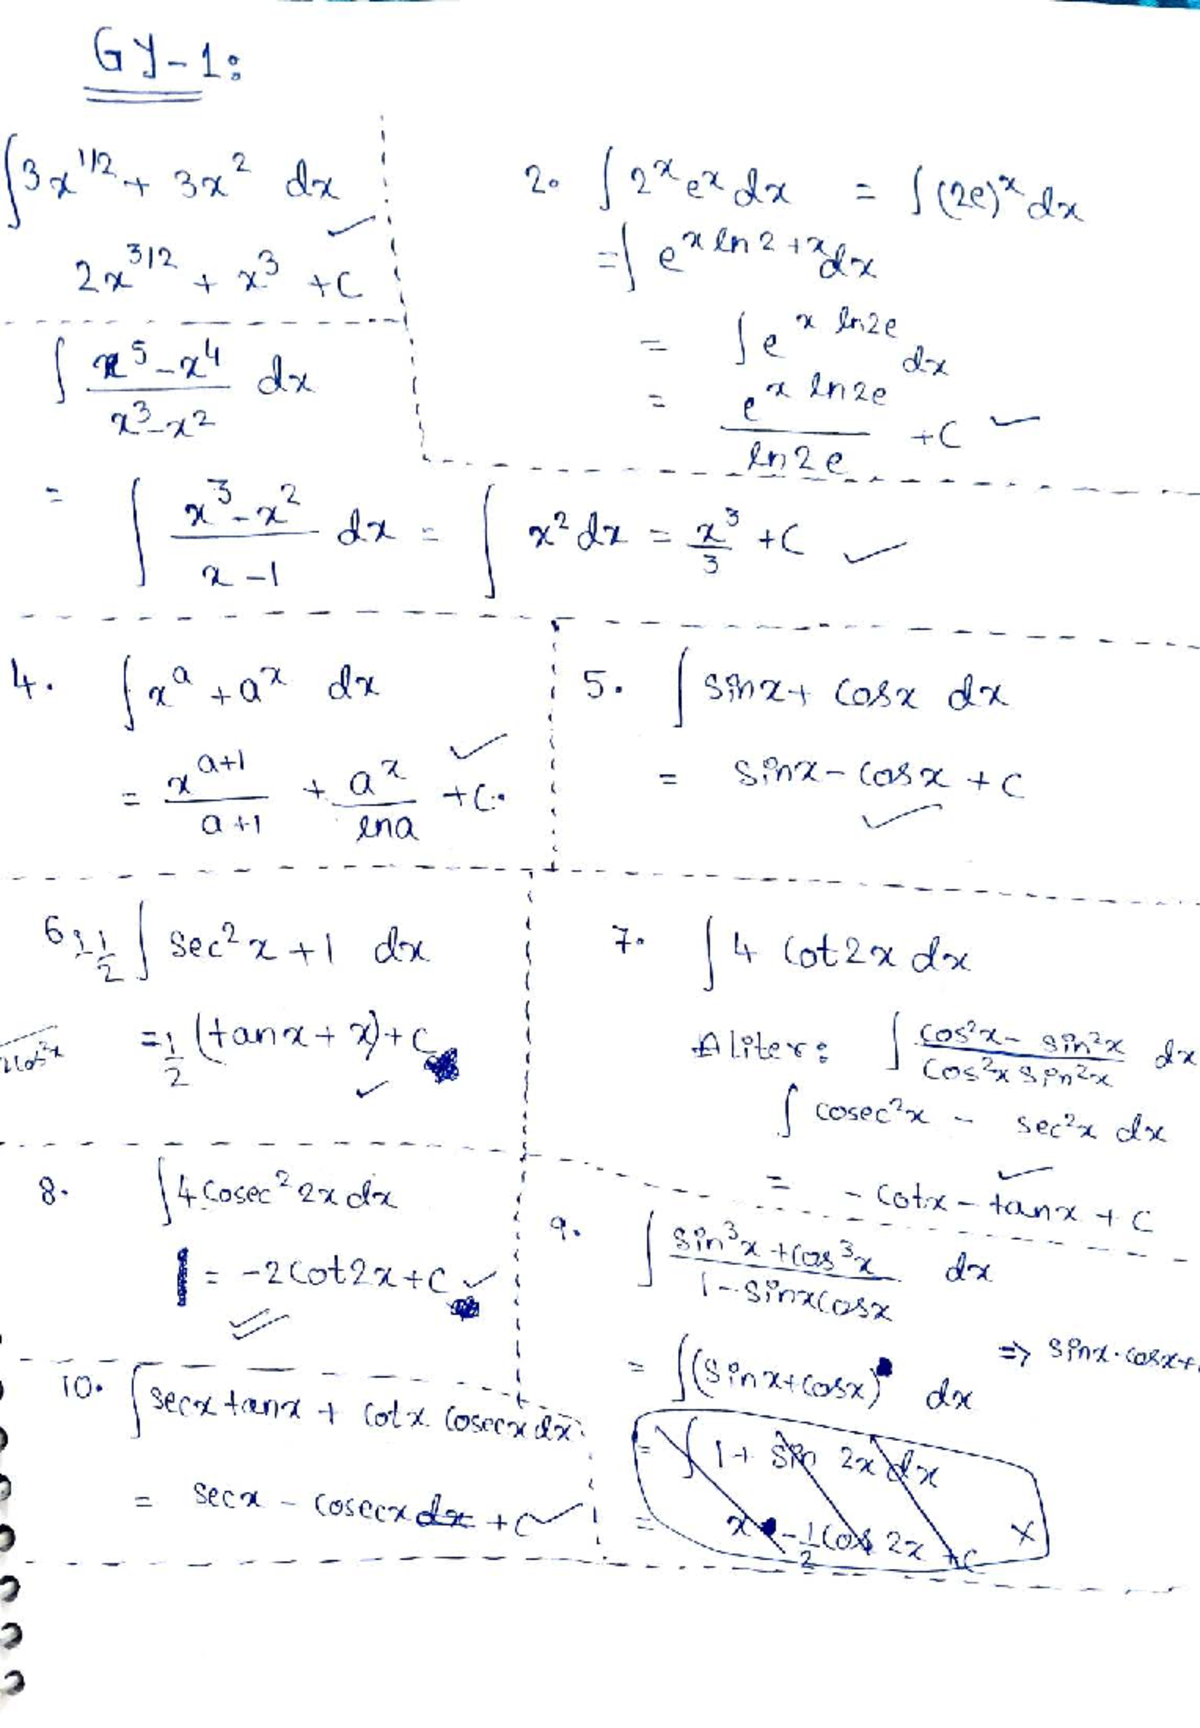 GY-1:
∫3x^1/2 + 3x^2 dx
2x^3/2 + x^3 + C
2. ∫2^x e^x dx = ∫(2e)^x dx
= ∫e^x ln2 + x dx
= ∫e^x ln2e dx
= e^x ln2e / ln2e + C
∫ x^5 - x^4 / x^3 - x^2 dx
= ∫ x^3 - x^2 / x - 1 dx = ∫ x^2 dx = x^3/3 + C
4. ∫x^a + a^x dx
= x^a+1 / a+1 + a^x / lna + C.
5. ∫sinx + cosx dx
= sinx - cosx + C
6. 1/2 ∫sec^2 x + 1 dx
= 1/2 (tanx + x) + C
2cos^2x
7. ∫4 cot2x dx
Aliter: ∫ cos^2x - sin^2x / cos^2x sin^2x dx
∫ cosec^2x - sec^2x dx
= - cotx - tanx + C
8. ∫4cosec^2 2x dx
= -2cot2x + C
9. ∫ sin^3x + cos^3x / 1 - sinxcosx dx
= ∫(sinx + cosx) dx
⇒ sinx - cosx +
= ∫1 + sin 2x dx
= x - 1/2 cos 2x + C ×
10. ∫secx tanx + cotx. cosecx dx
= secx - cosecx dx + C